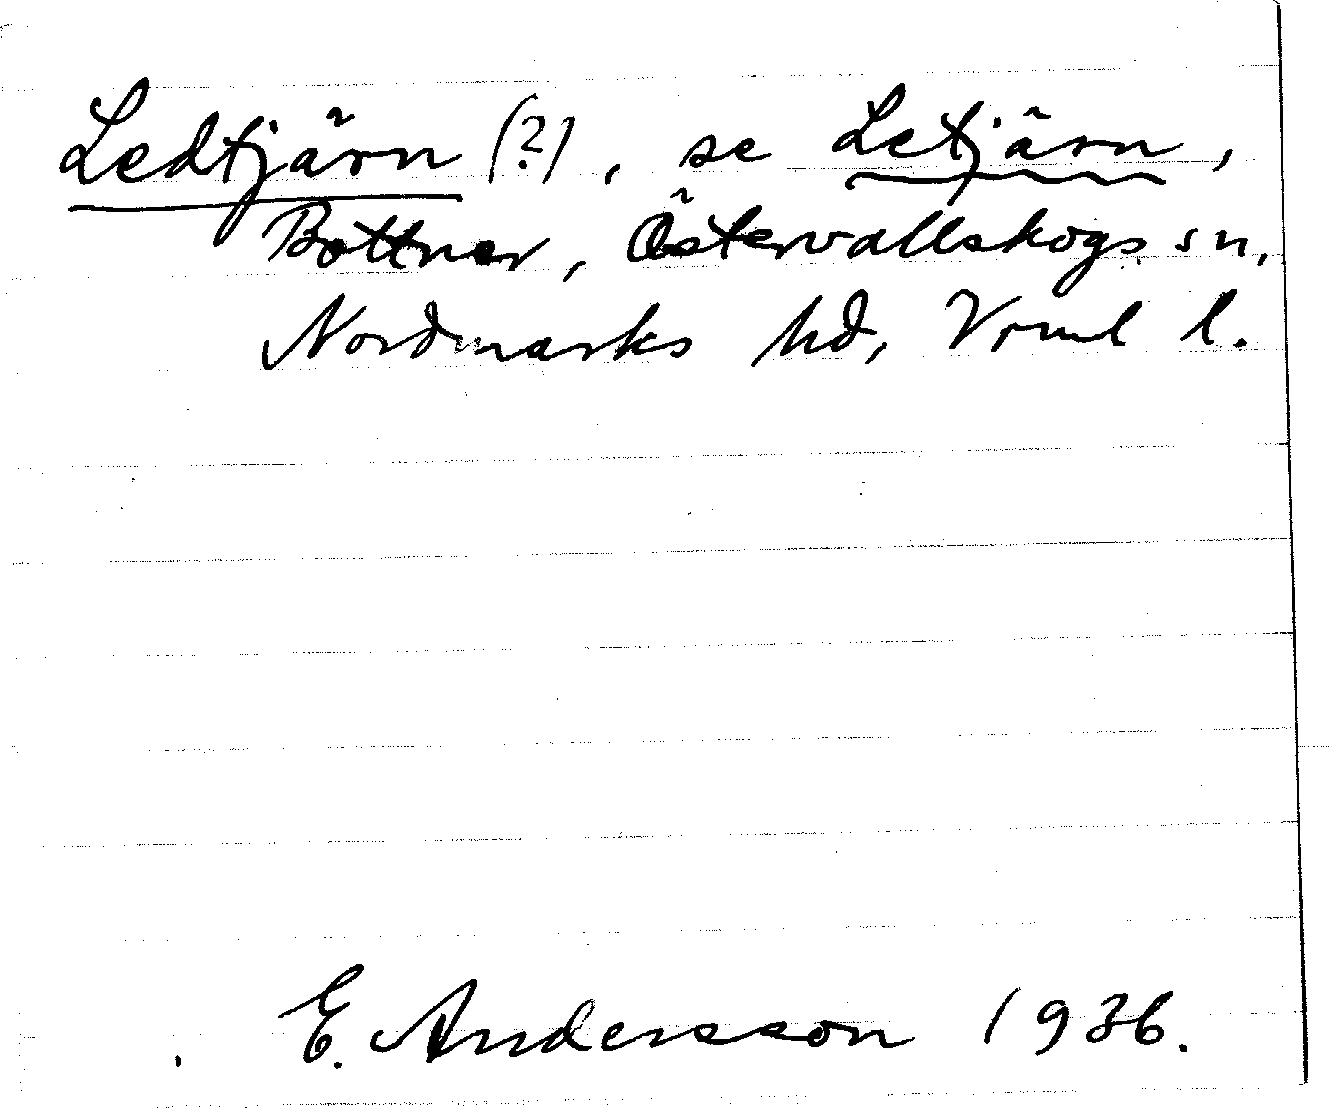 Ledtjärn (?), se Letjärn,
Bottner, Östervallskogs sn,
Nordmarks hd, Vrml l.
E. Andersson 1936.